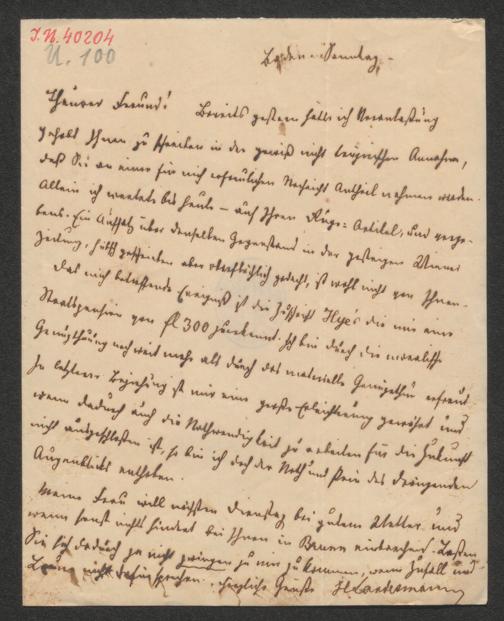 I.N. 40204
U. 100
Baden Sonntag
Theurer Freund! Bereits gestern hätte ich Veranlaßung
gehabt Ihnen zu schreiben in der gewiß nicht trügerischen Annahme,
daß Sie an einer für mich erfreulichen Nachricht Antheil nehmen werden.
Allein ich wartete bis heute – auf Ihren Artikel, und verge-
bens. Ein Aufsatz über denselben Gegenstand in der gestrigen Wiener
Zeitung, hübsch geschrieben aber oberflächlich gedacht, ist wohl nicht von Ihnen.
Das mich betreffende Ereigniß ist die Zuschrift die mir eine
Staatspension von fl 300 zuerkennt. Ich bin durch die moralische
Genugthuung noch weit mehr als durch das materielle erfreut.
In letzterer Beziehung ist mir eine große Erleichterung gewährt und
wenn dadurch auch die Nothwendigkeit zu arbeiten für die Zukunft
nicht ausgeschlossen ist, so bin ich doch der Noth und Pein des dringenden
Augenblicks enthoben.
Meine Frau will nächsten Dienstag bei gutem Wetter und
wenn sonst nichts hindert bei Ihnen in einbrechen. Lassen
Sie sich dadurch ja nicht zwingen zu uns zu kommen, wenn Zufall und
Laune nicht dafür sprechen. Herzliche Grüße HLandesmann